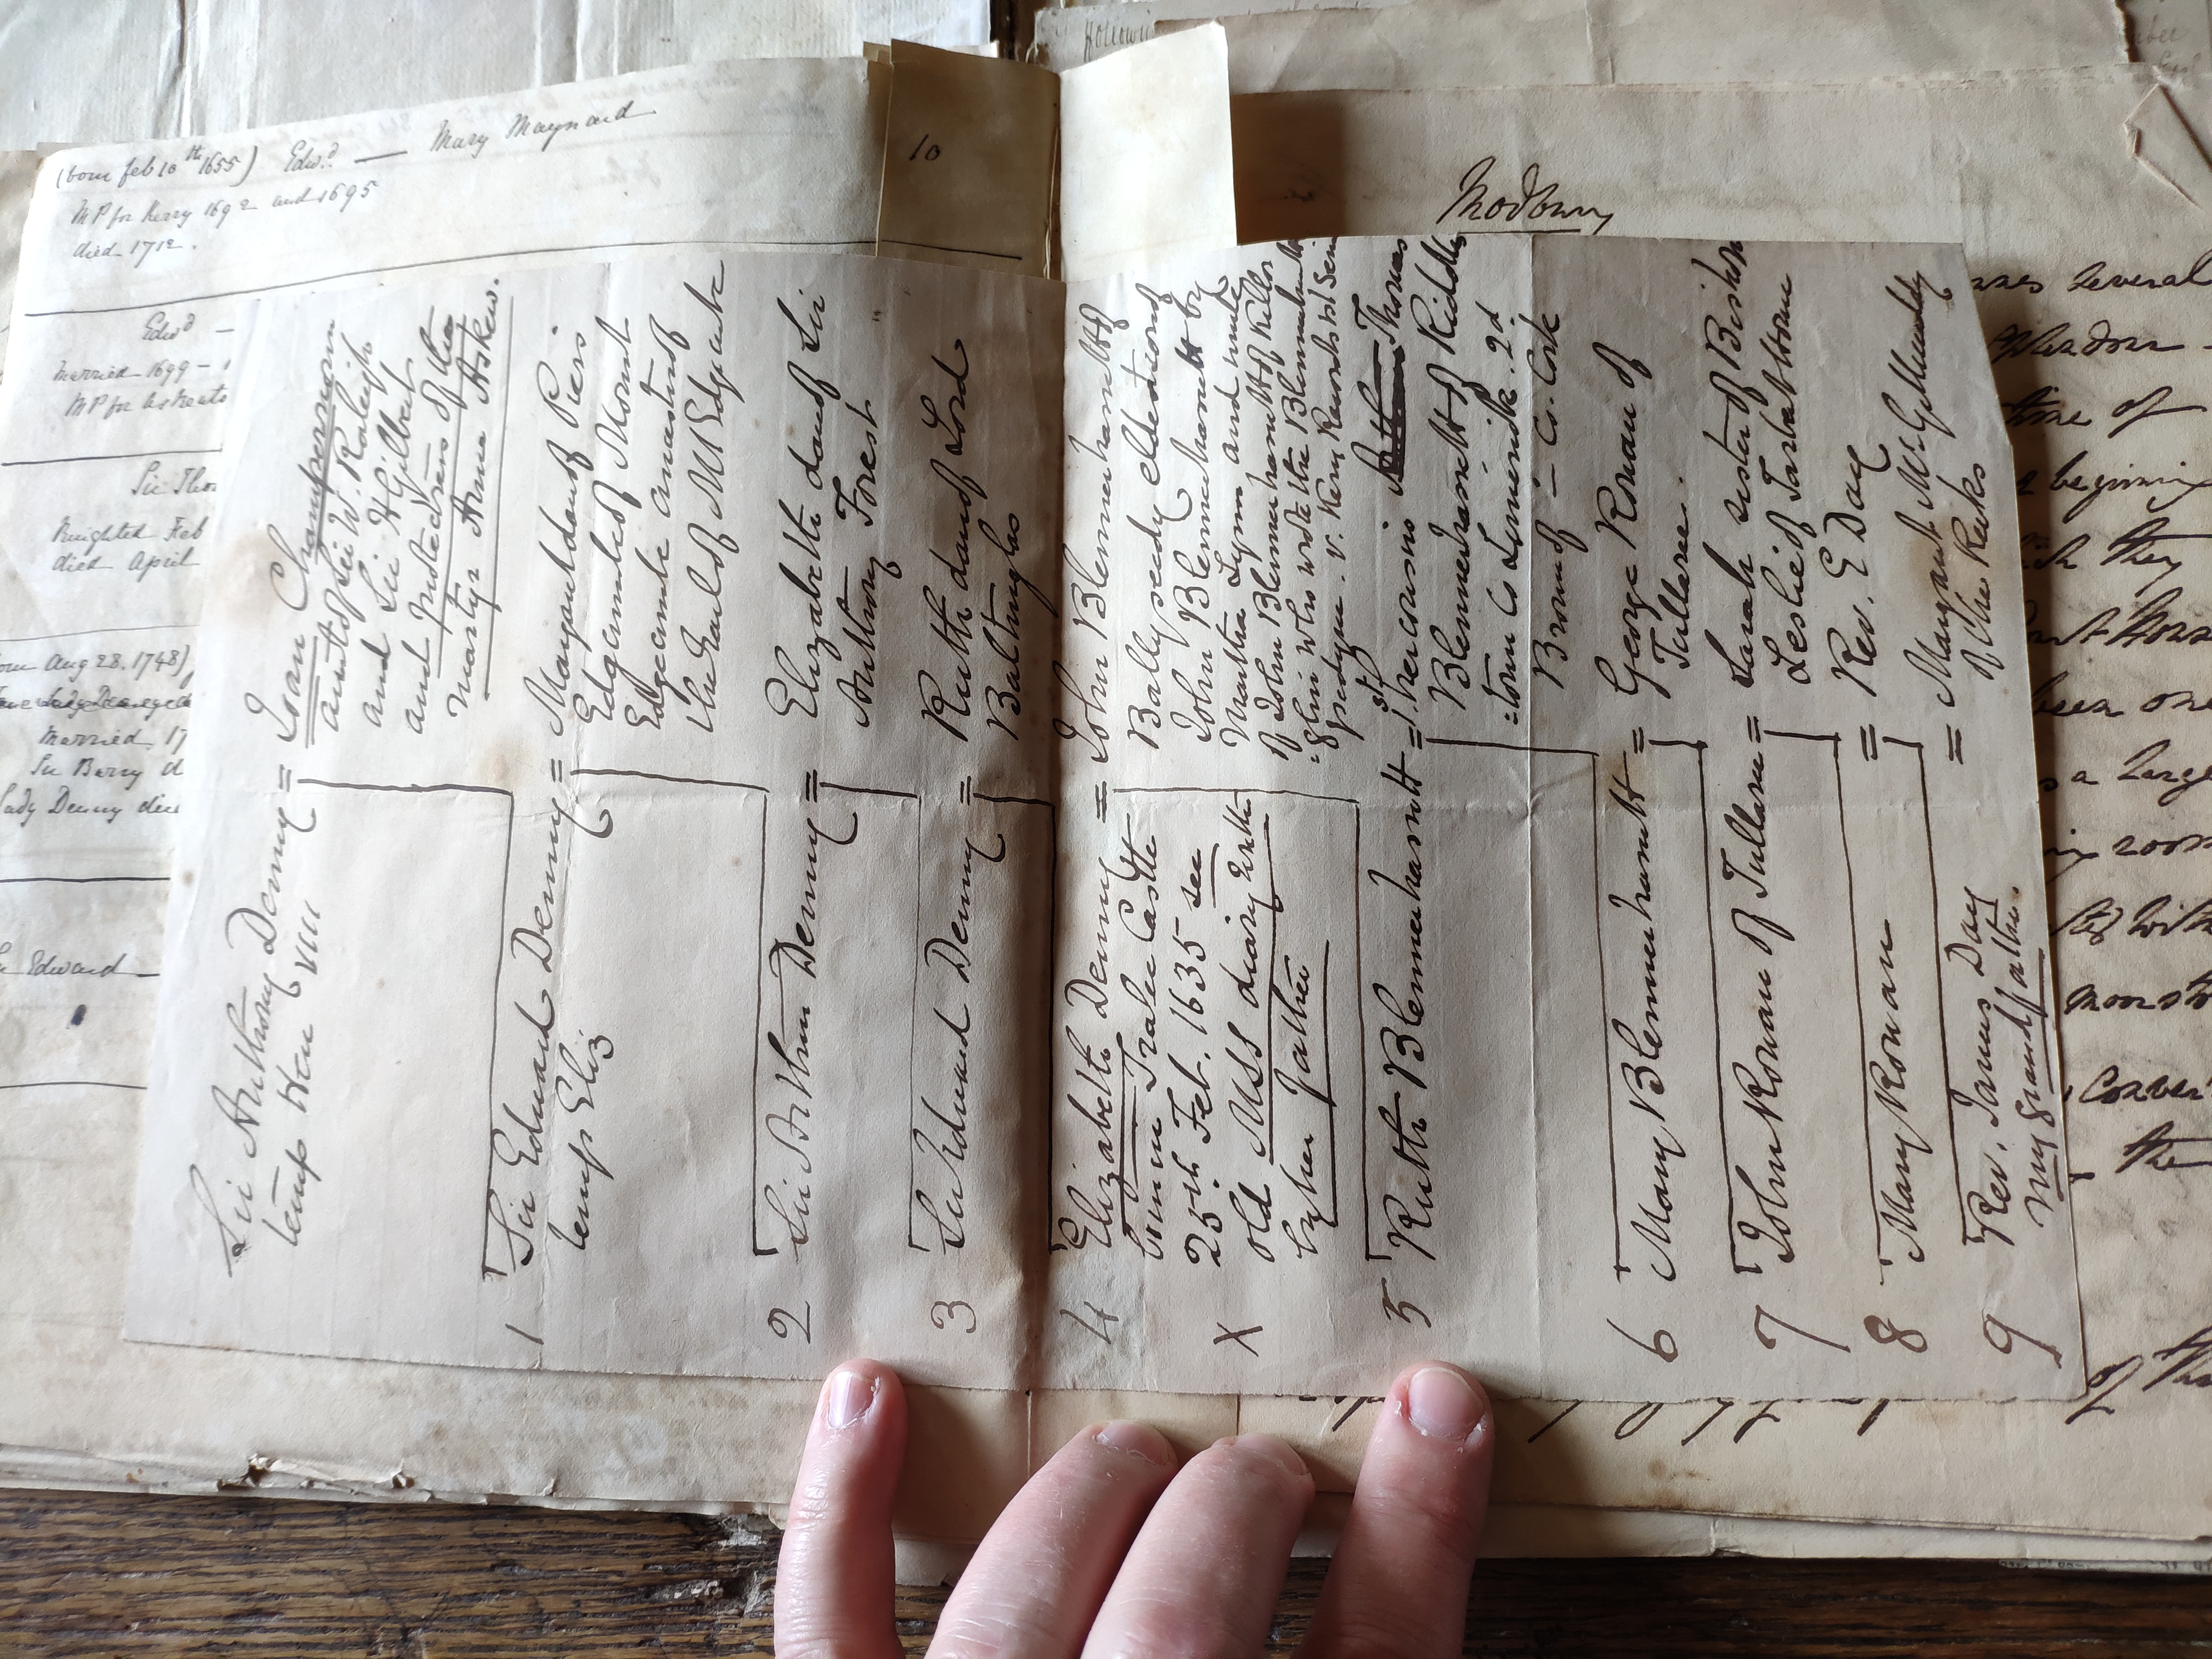 (born Feb 10th 1655) Edwd. — Mary Maynard
MP for Kerry 1692 and 1695
died 1712.
Edwd —
Married 1699 —
MP for Askeaton
Sir Tho
Knighted Feb
died April
Aug 28. 1748)
Married 17
Sir Barry d
Lady Denny died
Edward —
10
Modbury
Sir Anthony Denny = Joan Champernown
temp Hen VIII
aunt of Sir W. Raleigh
and Sir H Gilbert
and protectress of the
martyr Anne Askew.
1 Sir Edward Denny = Margaret dau of Piers
temp Eliz
Edgcumbe of Mount
Edgcumbe ancestor of
the Earls of Mt Edgcumbe
2 Sir Arthur Denny = Elizabeth dau of Sir
Anthony Forest
3 Sir Edward Denny = Ruth dau of Lord
Baltinglas
4 Elizabeth Denny = John Blennerhassett of
born in Tralee Castle
25th Feb. 1635 see
X old MSS diary
by her father
Ballyseedy eldest son of
John Blennerhassett by
Martha Lynn and uncle
of John Blennerhassett of Killor
glin who wrote the Blennerhassett
pedigree. v. Kerry Records 1st Series
5 Ruth Blennerhassett = 1st her cousin Thomas
Blennerhassett of Riddles
town Co Limerick. 2d
Brown of — Co. Cork
6 Mary Blennerhassett = George Rowan of
Tullaree.
7 John Rowan of = Sarah sister of Bishop
Leslie of Tarbert House
8 Mary Rowan = Rev. E Day
9 Rev. James Day = Margaret McGillicuddy
my grandfather.
of the Reeks
several
time of
beginning
they
been one
a large
room
with
the
of